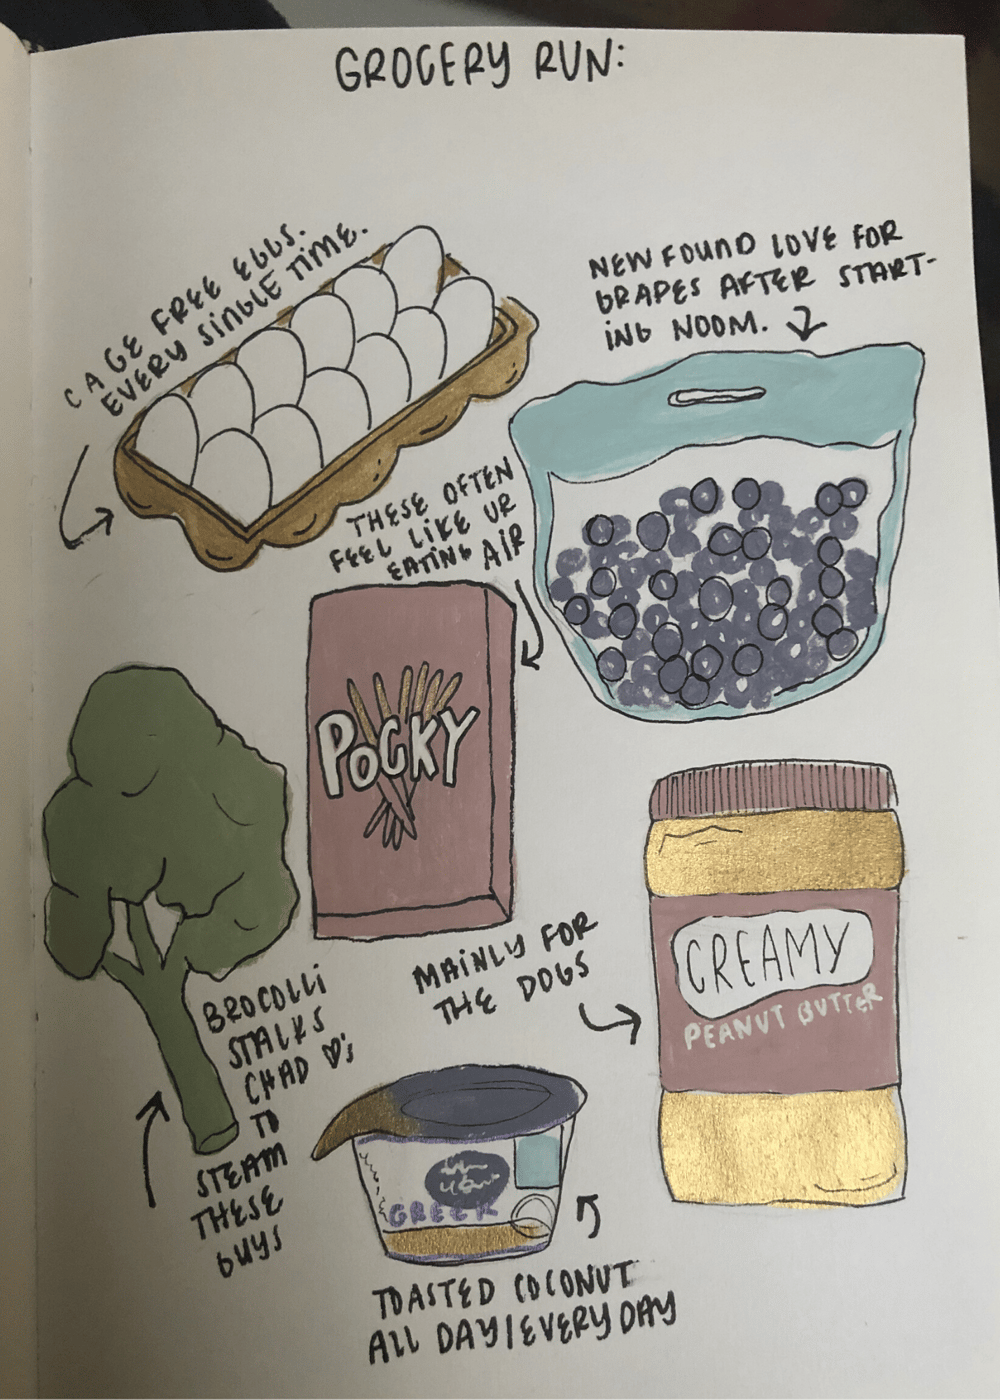 GROCERY RUN:
CAGE FREE EGGS.
EVERY SINGLE TIME.
NEW FOUND LOVE FOR
GRAPES AFTER START-
ING NOOM.
THESE OFTEN
FEEL LIKE UR
EATING AIR
POCKY
MAINLY FOR
THE DOGS
CREAMY
PEANUT BUTTER
BROCOLLI
STALKS
CHAD ♡'s
TO
STEAM
THESE
GUYS
GREEK
TOASTED COCONUT
ALL DAY/EVERY DAY